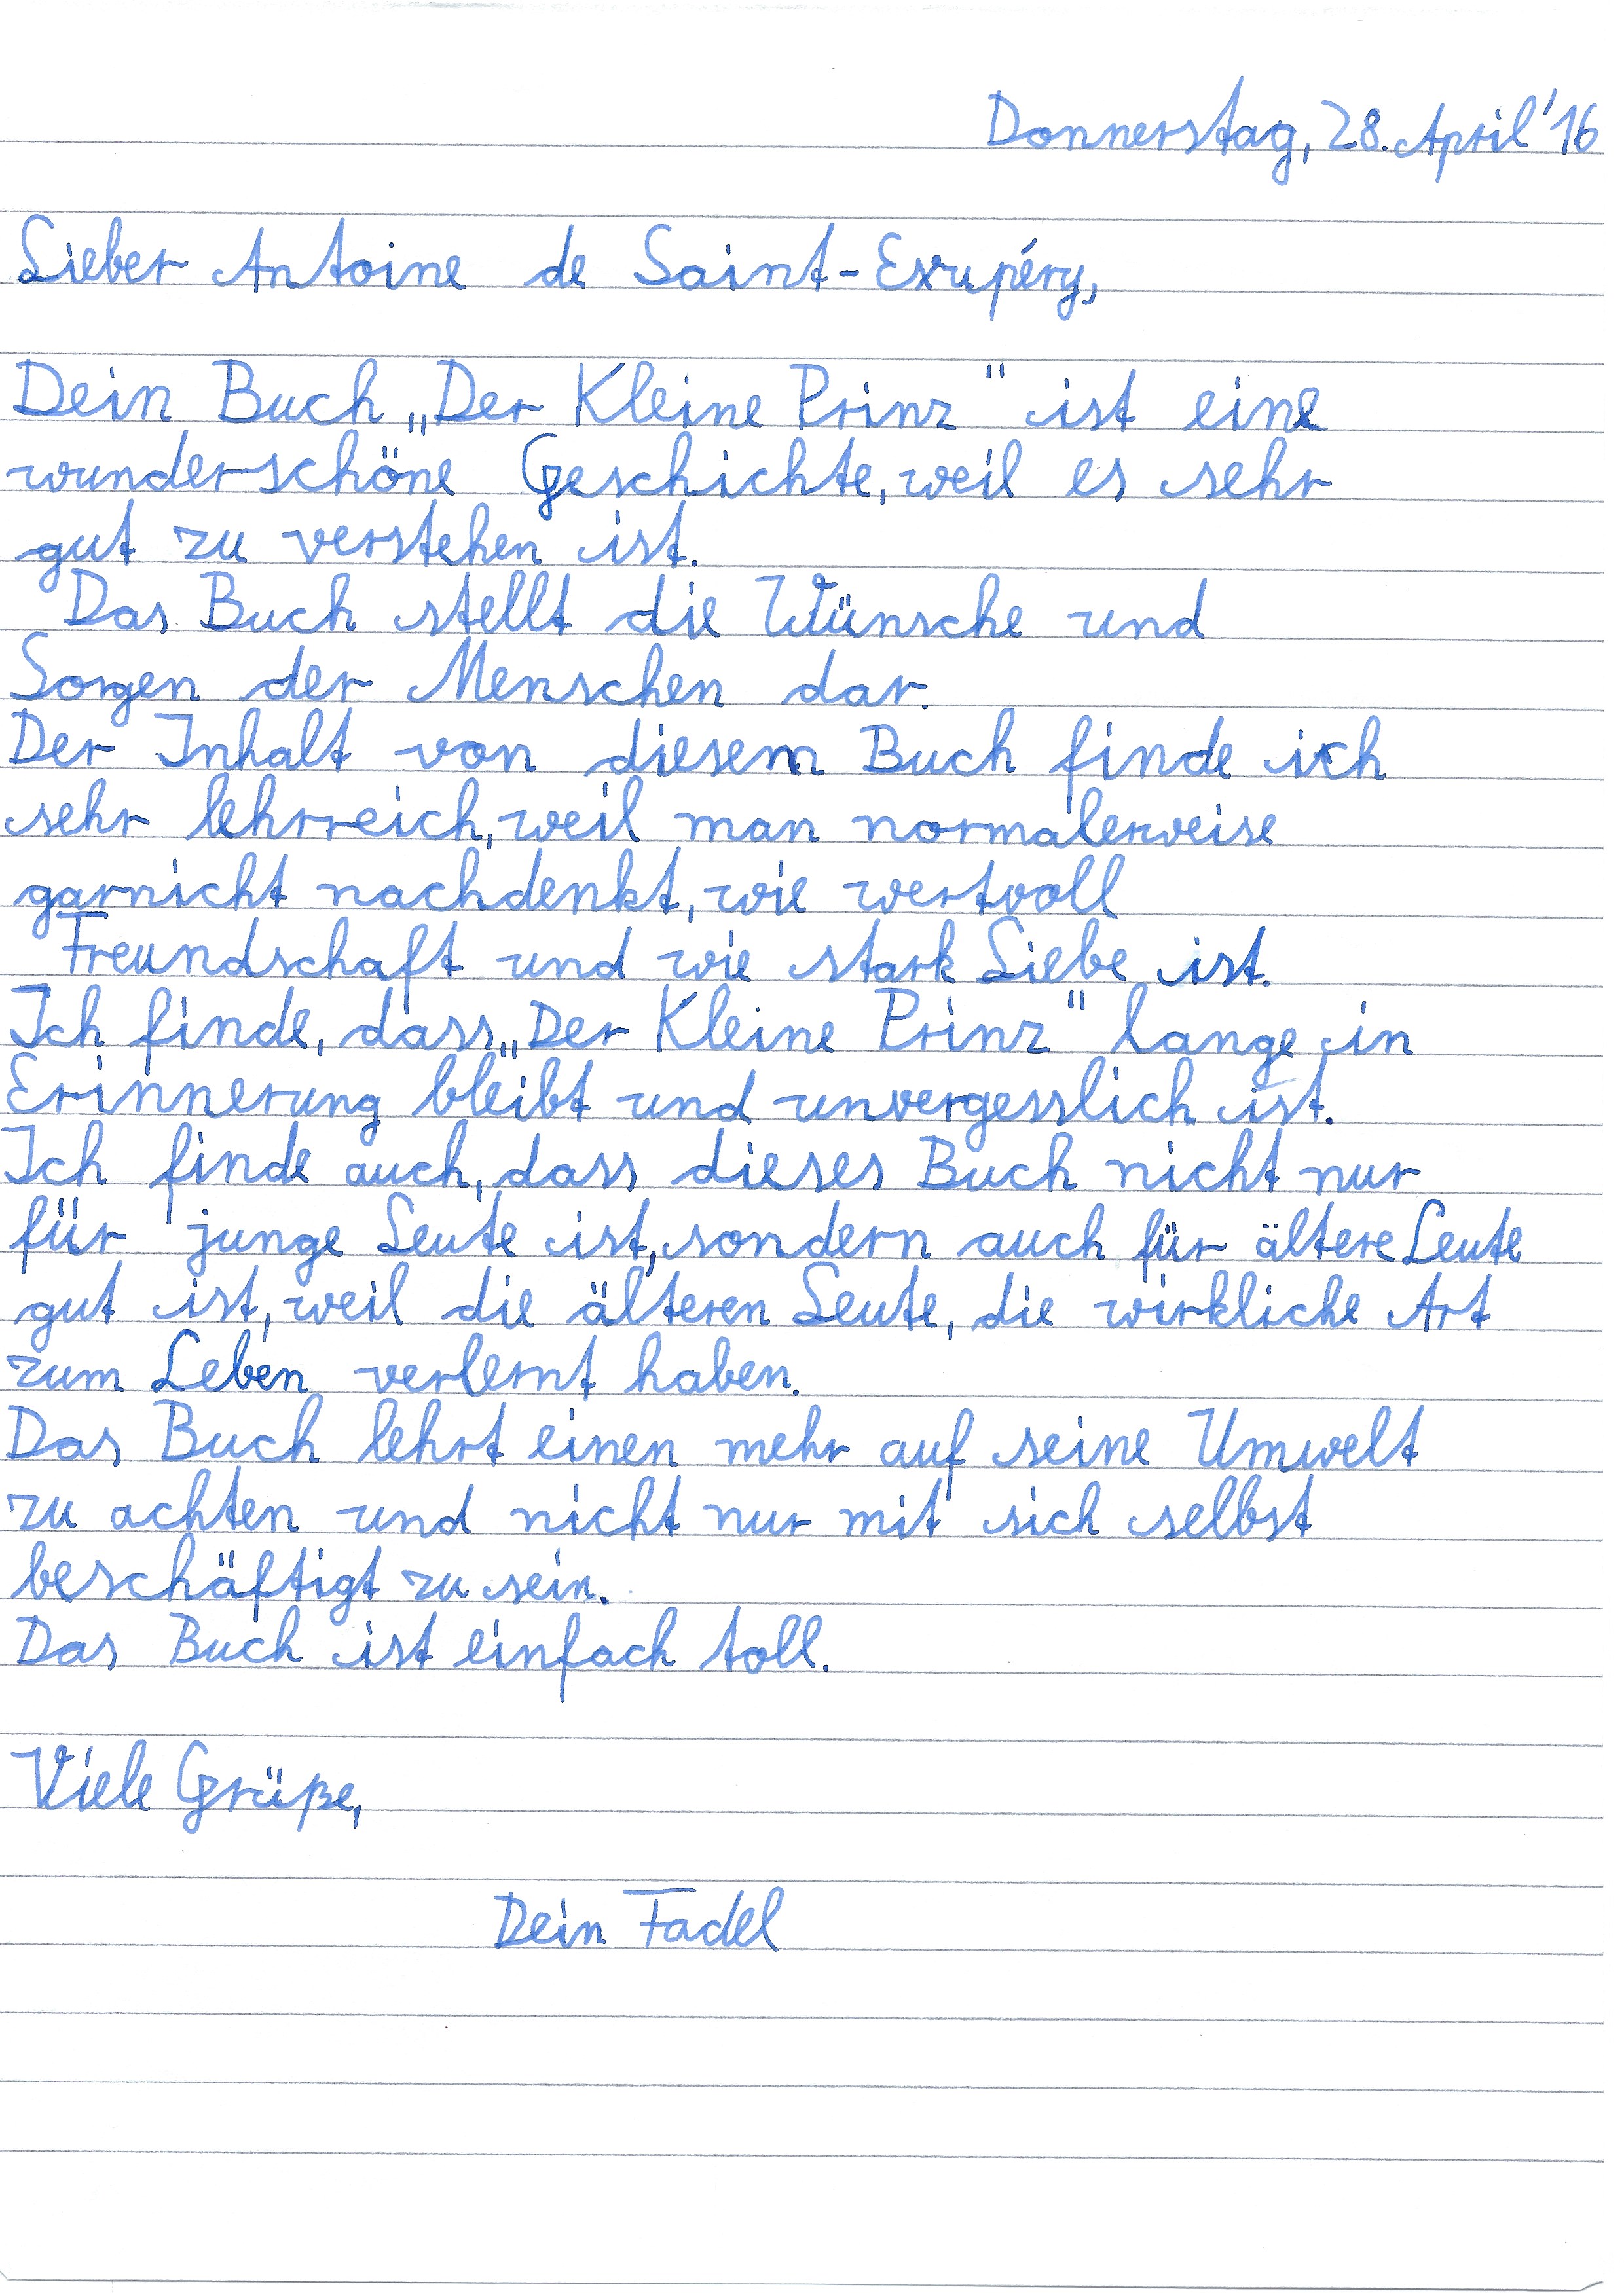 Donnerstag, 28. April '16
Lieber Antoine de Saint-Exupéry,
Dein Buch „Der Kleine Prinz" ist eine
wunderschöne Geschichte, weil es sehr
gut zu verstehen ist.
Das Buch stellt die Wünsche und
Sorgen der Menschen dar.
Der Inhalt von diesem Buch finde ich
sehr lehrreich, weil man normalerweise
garnicht nachdenkt, wie wertvoll
Freundschaft und wie stark Liebe ist.
Ich finde, dass „Der Kleine Prinz" lange in
Erinnerung bleibt und unvergesslich ist.
Ich finde auch, dass dieses Buch nicht nur
für junge Leute ist, sondern auch für ältere Leute
gut ist, weil die älteren Leute, die wirkliche Art
zum Leben verlernt haben.
Das Buch lehrt einen mehr auf seine Umwelt
zu achten und nicht nur mit sich selbst
beschäftigt zu sein.
Das Buch ist einfach toll.
Viele Grüße,
Dein Fadel